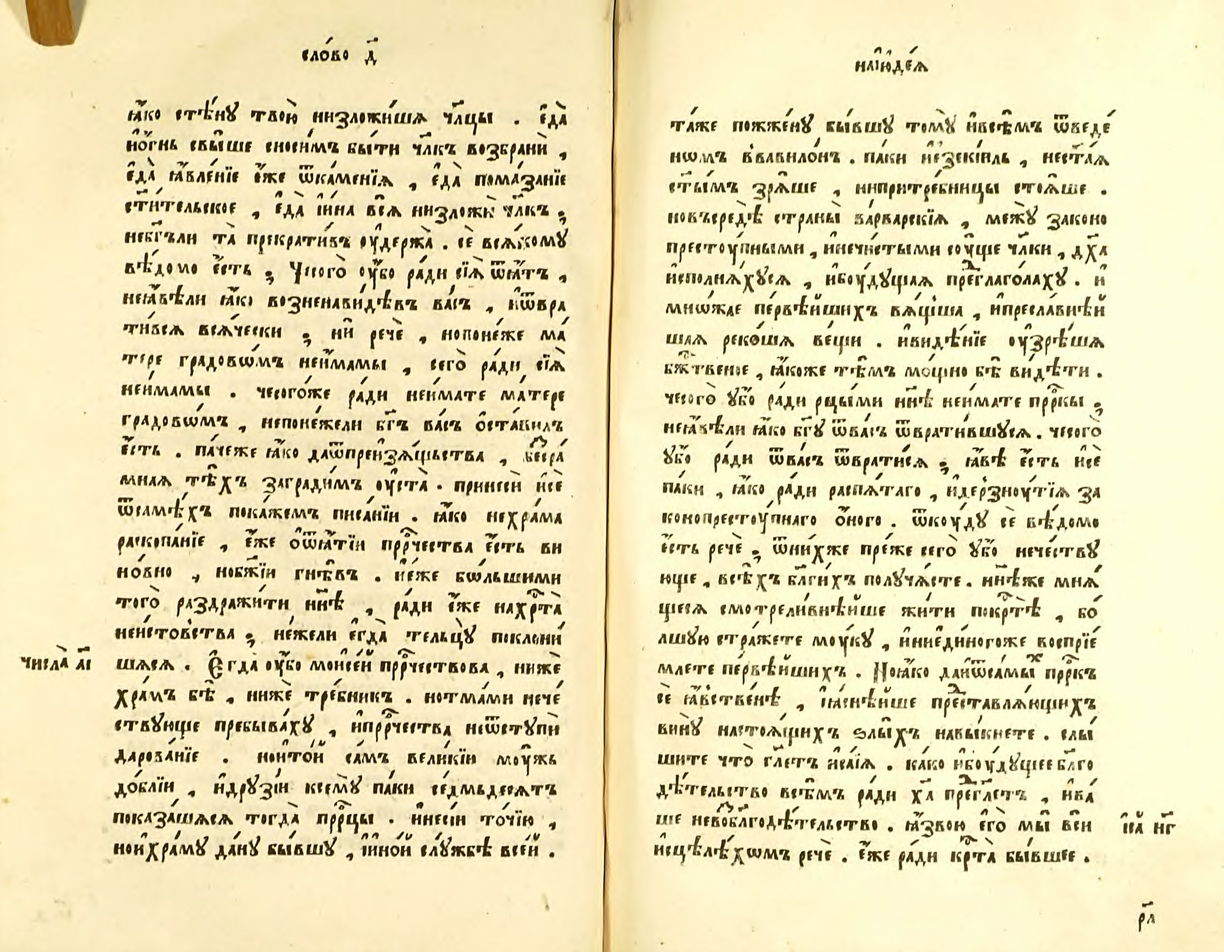 сло́во д҃
ꙗ҆́ко стѣ́нꙋ твою̀ низложи́шѧ чл҃цы . є҆да̀
и҆ѻ҆́гнь свы́ше сноси́мъ бы́ти чл҃къ возбранѝ ,
є҆да̀ ꙗ҆вле́нїе є҆́же ѿка́менїѧ , є҆да̀ пома́занїе
ст҃и́тельское , є҆да̀ и҆́ина всѧ̀ низложѝ чл҃къ ;
небг҃ъли та̀ прекрати́въ ᲂу҆держа̀ . сѐ всѧ́комꙋ
вѣ́домо є҆́сть ; чесогѡ̀ ᲂу҆́бо ра́ди сїѧ̀ ѿѧ́тъ ,
неꙗ҆́вѣли ꙗ҆́ко возненави́дѣвъ ва́съ , и҆ѿвра
ти́всѧ всѧ́чески ; нѝ речѐ , нопоне́же ма́
тере градовѡ́мъ неи҆́мамы , сегѡ̀ ра́ди сїѧ̀
неи҆́мамы . чесогѡ́же ра́ди неи҆́мате ма́тере
градовѡ́мъ , непоне́жели бг҃ъ ва́съ ѡ҆ста́вилъ
є҆́сть . па́чеже ꙗ҆́ко даѿпреизѧ́щьства , бесра́
мнаѧ тѣ́хъ загради́мъ ᲂу҆ста̀ . принесѝ и҆сѐ
ѿсамѣ́хъ пока́жемъ писа́нїи . ꙗ҆́ко нехра́ма
раскопа́нїе , є҆́же ѻ҆ѿѧ́тїи прⷪ҇рчества є҆́сть ви
но́вно , нобж҃їи гнѣ́въ . и҆е҆́же бо́льшими
того̀ раздражи́ти нн҃ѣ , ра́ди є҆́же нахрⷭ҇та̀
неи́стовства ; не́жели є҆гда̀ тельцꙋ̀ поклони́
шѧсѧ . Є҆гда̀ ᲂу҆́бо мои҆се́й прⷪ҇рчествова , нижѐ
хра́мъ бѣ̀ , нижѐ тре́бникъ . нотма́ми нече́
ствꙋюще пребыва́хꙋ , и҆прⷪ҇рчества неѿстꙋпѝ
дарова́нїе . нои҆то́й са́мъ вели́кїи мꙋ́жь
до́блїи , и҆дрꙋзі́и ксемꙋ̀ па́ки се́дмьдесѧтъ
показа́шѧсѧ тогда̀ прⷪ҇рцы . и҆несі́и то́чїю ,
нои҆хра́мꙋ да́нꙋ бы́вшꙋ , и҆́иной слꙋ́жбѣ все́й .
чи́сла а҃і
наїꙋде́ѧ
та́же пожже́нꙋ бы́вшꙋ томꙋ̀ и҆всѣ́мъ ѿведе́
нѡмъ вваѵилѡ́нъ . па́ки и҆езекі́иль , нест҃а́ѧ
ст҃ы́мъ зрѧ́ше , нипритре́бницы стоѧ́ше .
новъсредѣ̀ страны̀ ва́рварскїѧ , межꙋ̀ законо
престꙋ́пными , и҆нечи́стыми сꙋ́ще чл҃ки , дх҃а
и҆сполнѧ́хꙋсѧ , и҆бꙋ́дꙋщаѧ преглаго́лахꙋ . и҆
мнѡ́жае пе́рвѣйшихъ вѧ́щша , и҆пресла́внѣй
шаѧ реко́шѧ ве́щи . и҆видѣ́нїе ᲂу҆зрѣ́шѧ
бж҃твеное , ꙗ҆́коже тѣ́мъ мо́щно бѣ̀ ви́дѣти .
чесогѡ̀ ᲂу҆́бо ра́ди рцы́ми нн҃ѣ неи҆́мате прⷪ҇ркы ;
неꙗ҆́вѣли ꙗ҆́ко бг҃ꙋ ѿва́съ ѿврати́вшꙋсѧ . чесогѡ̀
ᲂу҆́бо ра́ди ѿва́съ ѿврати́сѧ ; ꙗ҆́вѣ є҆́сть и҆сѐ
па́ки , ꙗ҆́ко ра́ди распѧ́таго , и҆дерзнꙋ́тїѧ за
конопрестꙋ́пнаго ѻ҆́ного . ѿкꙋ́дꙋ сѐ вѣ́домо
є҆́сть речѐ ; ѿни́хже пре́же сегѡ̀ ᲂу҆́бо нече́ствꙋ
юще , всѣ́хъ бл҃ги́хъ полꙋча́сте . нн҃ѣже мнѧ́
щесѧ смотрели́внѣйше жи́ти покрⷭ҇тѣ̀ , бо́
лшꙋю стра́жете мꙋ́кꙋ , и҆ниеди́ногоже воспрїе́
млете пе́рвѣйшихъ . Ноꙗ҆́ко даи҆ѿсамы́хъ прⷪ҇ркъ
сѐ ꙗ҆́вственѣ , и҆ꙗ҆снѣ́йше преⷣставлѧ́ющихъ
винꙋ̀ настоѧ́щихъ ѕлы́хъ навы́кнете . слы́
шите что̀ гл҃етъ и҆са́їѧ . ка́ко и҆бꙋ́дꙋщее бл҃го
дѣ́тельство всѣ́мъ ра́ди хⷭ҇а̀ прегл҃етъ , и҆ва́
ше невобл҃годѣ́тельство . ꙗ҆́звою є҆гѡ̀ мы̀ всѝ
и҆сцѣлѣ́хѡмъ речѐ . є҆́же ра́ди крⷭ҇та̀ бы́вшее .
и҆са́ нг҃
рл҃